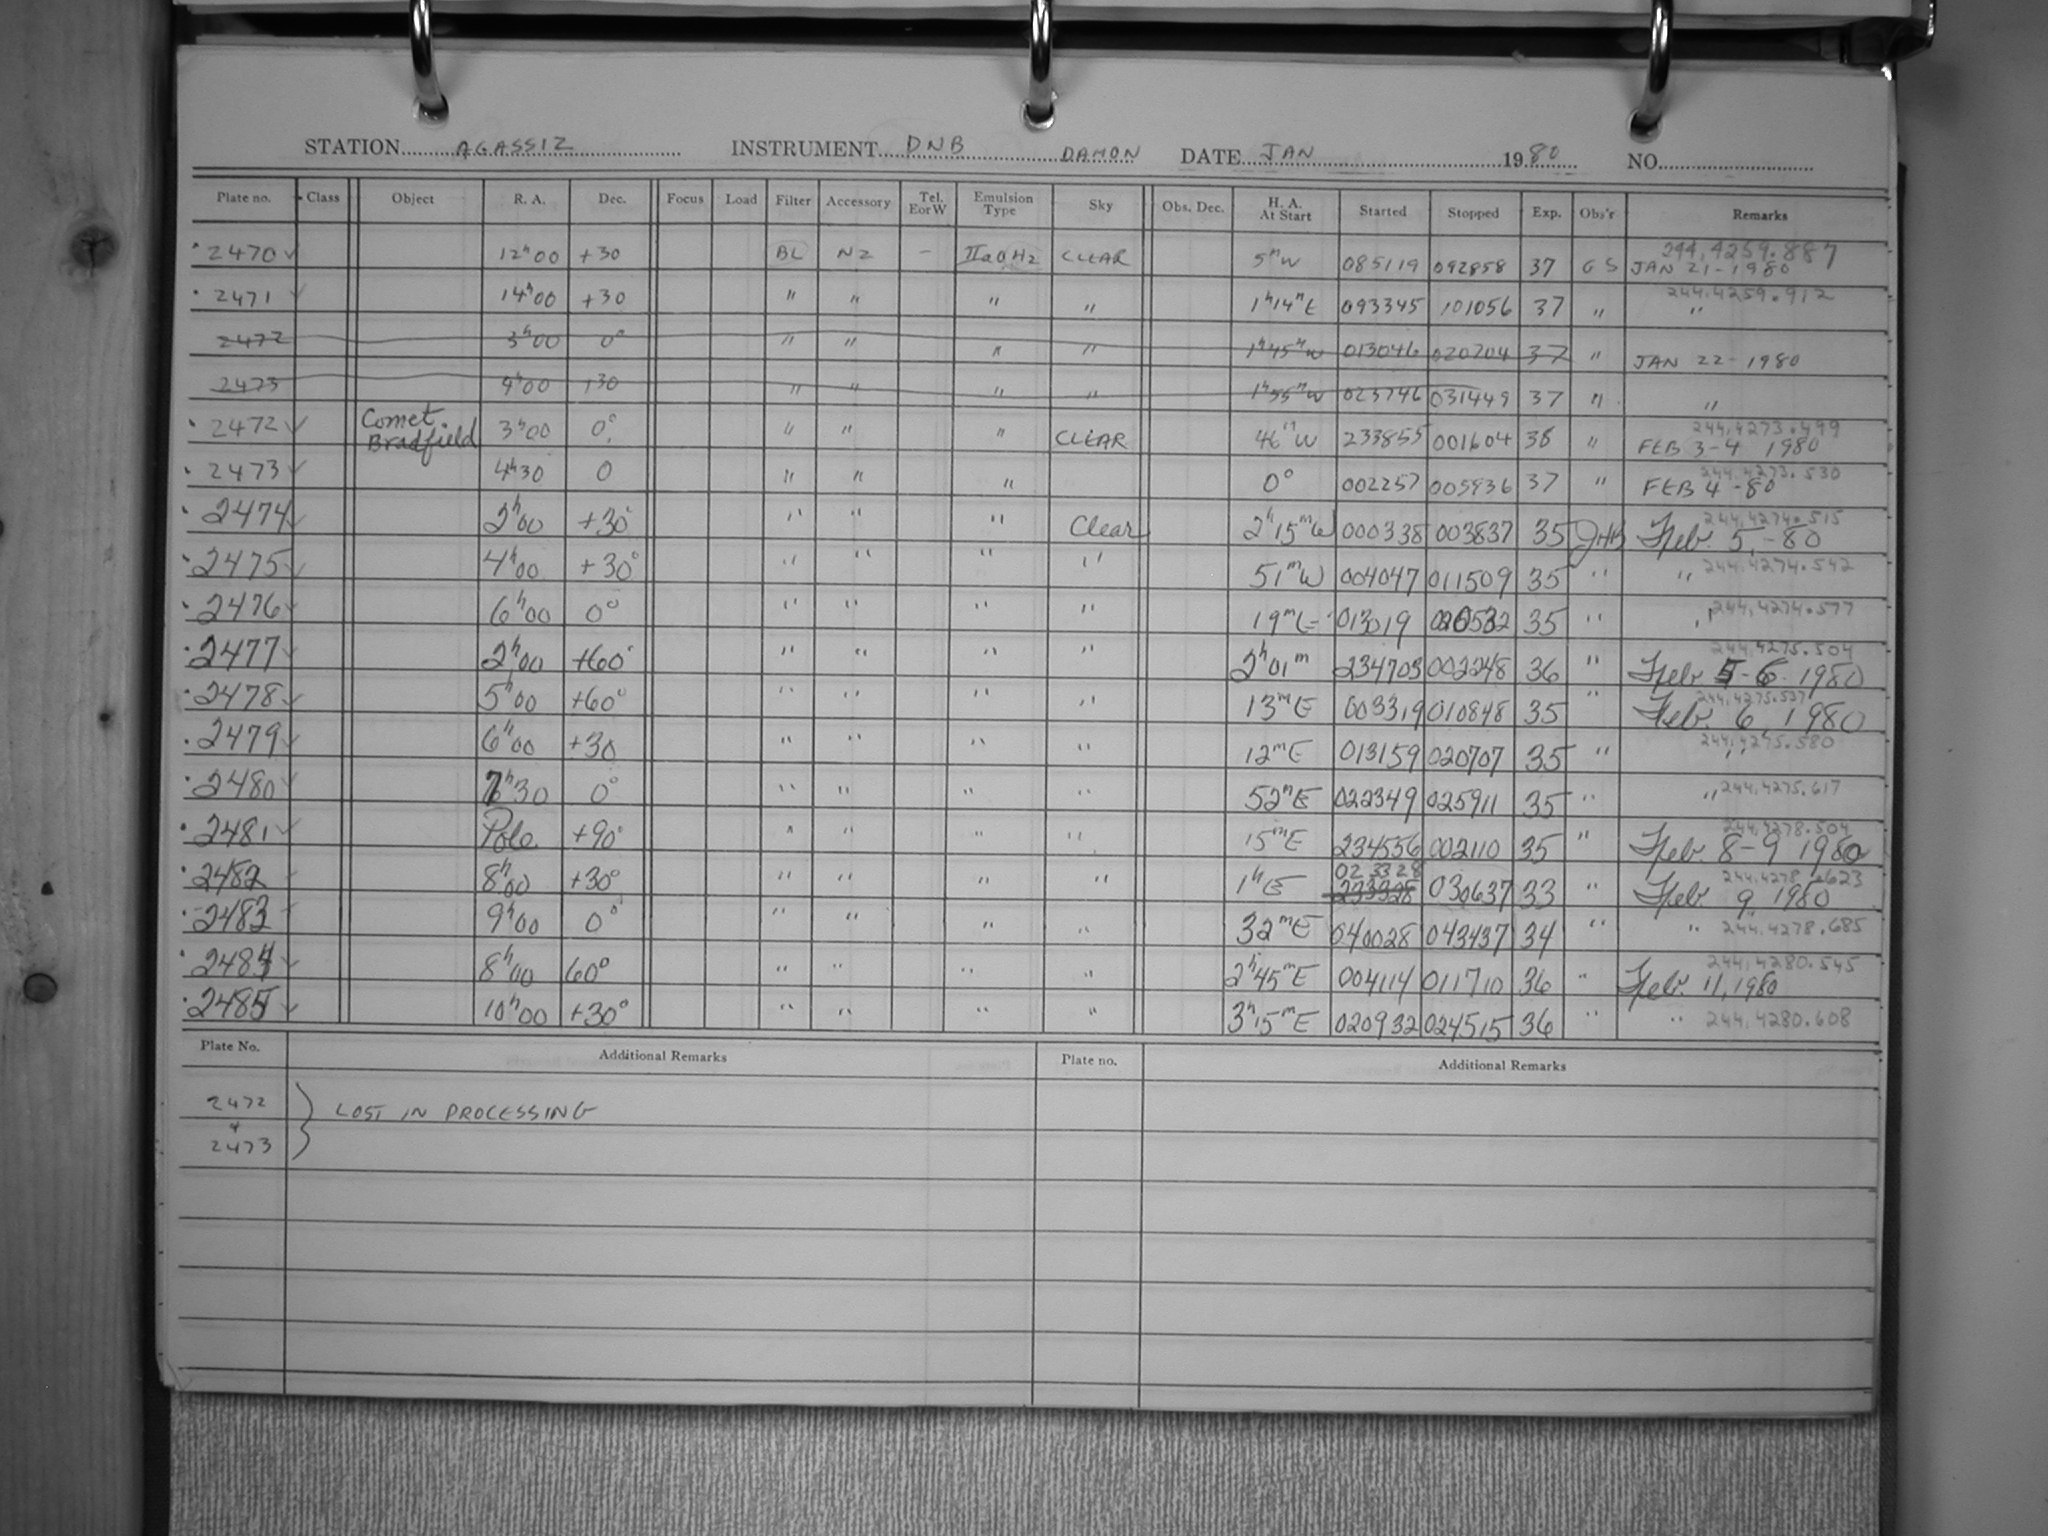 STATION AGASSIZ INSTRUMENT DNB DAMON DATE JAN 1980 NO.
Plate no. Class Object R. A. Dec. Focus Load Filter Accessory Tel. EorW Emulsion Type Sky Obs. Dec. H. A. At Start Started Stopped Exp. Obs'r Remarks
244,4259.887
2470 12h00 +30 BL N2 - IIaOH2 CLEAR 5mW 085119 092858 37 GS JAN 21-1980
244.4259.912
2471 14h00 +30 " " " " 1h14mE 093345 101056 37 " "
2472 3h00 0° " " " " 1h45mW 013046 020704 37 " JAN 22-1980
2473 4h00 +30 " " " " 1h55mW 023746 031449 37 " "
244,4273.499
2472 Comet Bradfield 3h00 0° " " " CLEAR 46mW 233855 001604 38 " FEB 3-4 1980
244.4273.530
2473 4h30 0 " " " 0° 002257 005936 37 " FEB 4-80
244.4274.515
2474 2h00 +30° " " " Clear 2h15mW 000338 003837 35 JHB Feb. 5,-80
2475 4h00 +30° " " " " 51mW 004047 011509 35 " " 244.4274.542
2476 6h00 0° " " " " 19mE 013019 020532 35 " " 244.4274.577
244.4275.504
2477 2h00 +60° " " " " 2h01m 234703 002248 36 " Feb. 5-6. 1980
244.4275.537
2478 5h00 +60° " " " " 13mE 003319 010848 35 " Feb. 6, 1980
2479 6h00 +30 " " " " 12mE 013159 020707 35 " " 244.4275.580
2480 7h30 0° " " " " 52mE 022349 025911 35 " " 244.4275.617
244.4278.504
2481 Pole +90° " " " " 15mE 234556 002110 35 " Feb. 8-9 1980
02 33 28 244.4278.623
2482 8h00 +30° " " " " 1hE 233328 030637 33 " Feb. 9 1980
2483 9h00 0° " " " " 32mE 040028 043437 34 " " 244.4278.685
244,4280.545
2484 8h00 60° " " " " 2h45mE 004114 011710 36 " Feb. 11, 1980
2485 10h00 +30° " " " " 3h15mE 020932 024515 36 " " 244,4280.608
Plate No. Additional Remarks Plate no. Additional Remarks
2472
&
2473
LOST IN PROCESSING